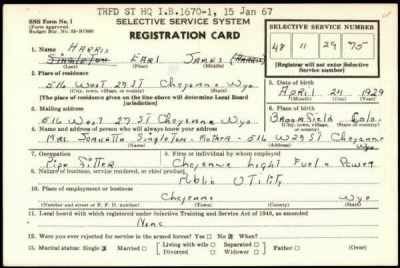 TRFD ST HQ I.B.1670-1, 15 Jan 67
SSS Form No. 1
(Form approved.
SELECTIVE SERVICE SYSTEM
REGISTRATION CARD
SELECTIVE SERVICE NUMBER
48 11 29 75
(Registrar will not enter Selective Service number)
1. Name HARRIS
Singleton Earl James (HARRIS)
(Last) (First) (Middle)
2. Place of residence
516 West 27 ST Cheyenne Wyo.
(City, town, village, or county) (State)
[The place of residence given on the line above will determine Local Board jurisdiction]
5. Date of birth
April 24 1929
3. Mailing address
516 West 27 ST Cheyenne Wyo
6. Place of birth
Broomfield Colo.
4. Name and address of person who will always know your address
Mrs. Jeanetta Singleton - Mother - 516 W 27 ST Cheyenne Wyo
7. Occupation
Pipe Fitter
8. Firm or individual by whom employed
Cheyenne Light Fuel & Power
9. Nature of business, service rendered, or chief product
Public Utility
10. Place of employment or business
Cheyenne Wyo
(Number and street or R. F. D. number) (Town) (County) (State)
11. Local board with which registered under Selective Training and Service Act of 1940, as amended
None
12. Were you ever rejected for service in the armed forces? Yes No X When?
13. Marital status: Single X Married Living with wife Divorced Separated Widower Dependent Father (Over)